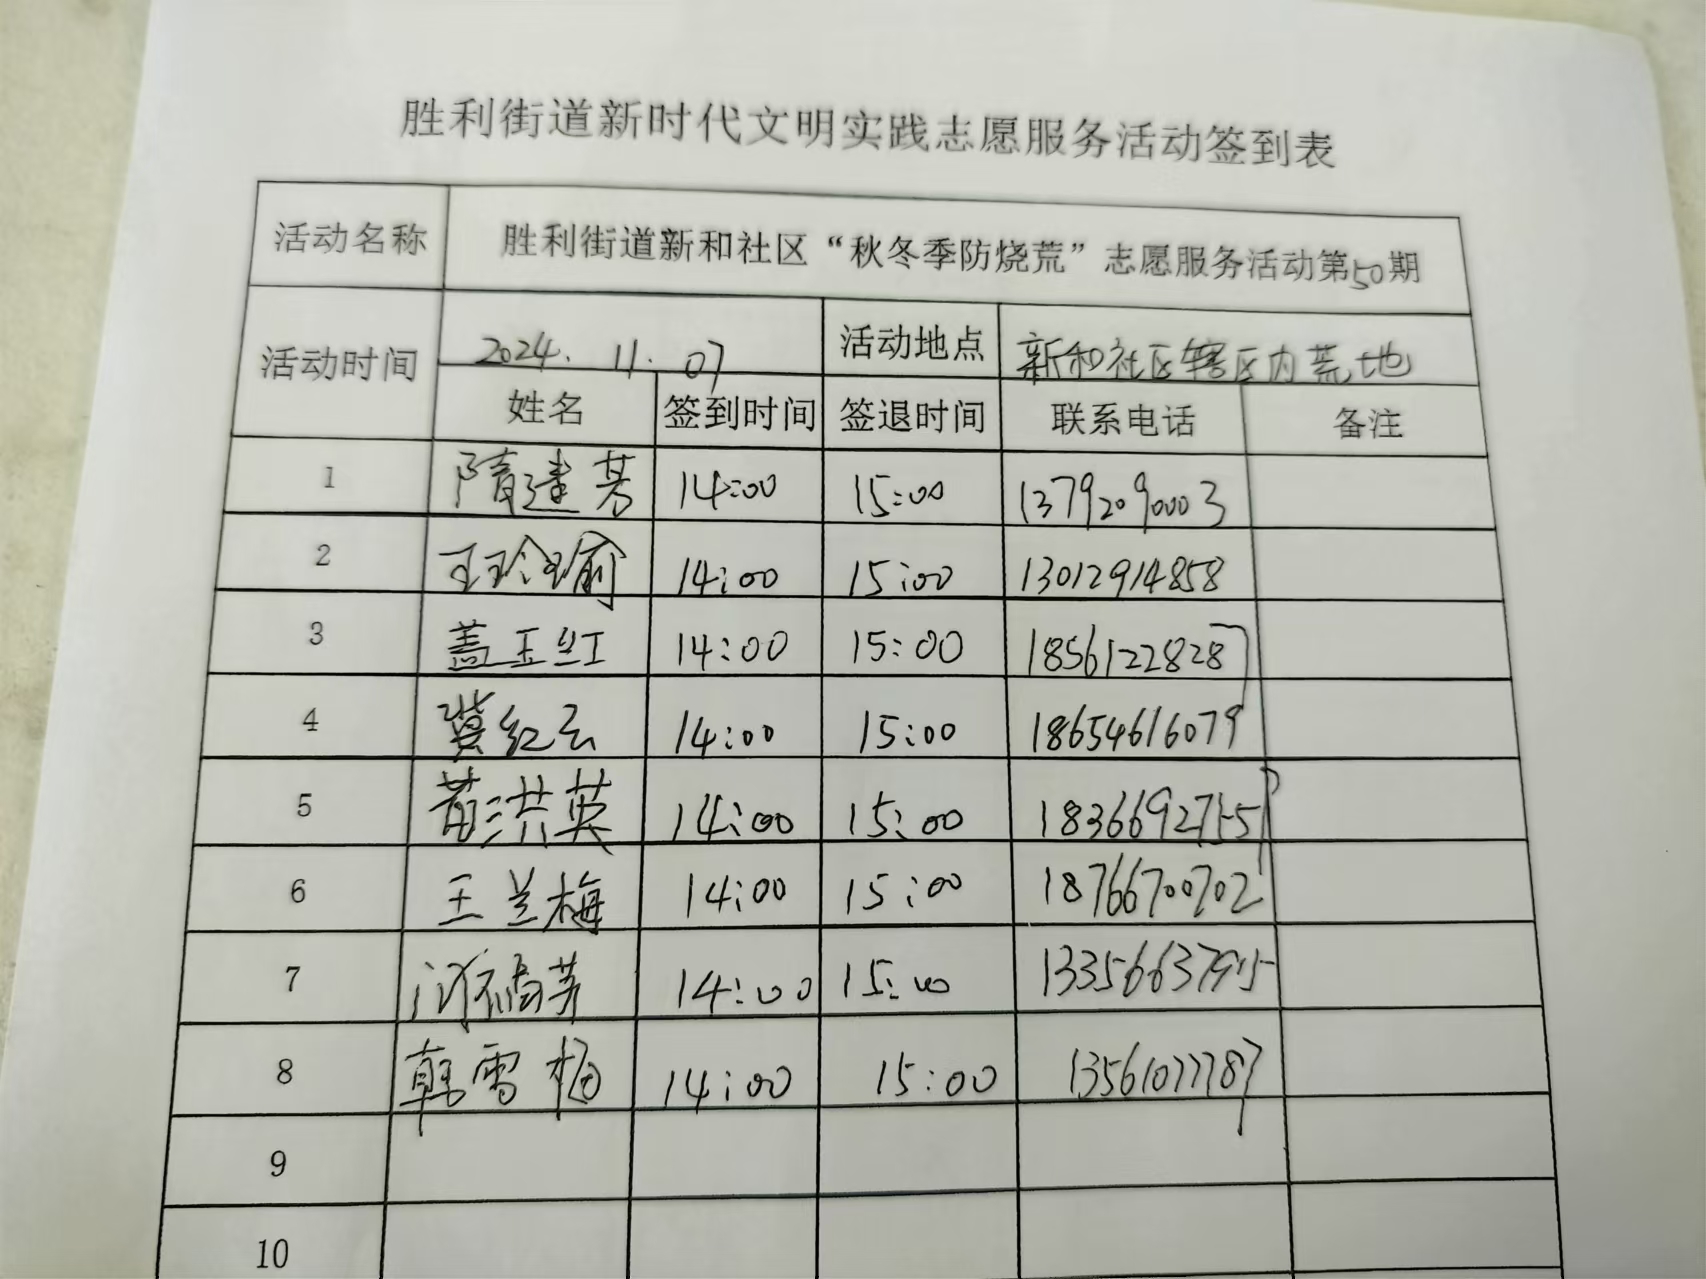 胜利街道新时代文明实践志愿服务活动签到表
活动名称 胜利街道新和社区“秋冬季防烧荒”志愿服务活动第50期
活动时间 2024.11.07 活动地点 新和社区辖区内荒地
姓名 签到时间 签退时间 联系电话 备注
1 隋建芳 14:00 15:00 13792090003
2 王玲瑜 14:00 15:00 13012914858
3 盖玉红 14:00 15:00 18561228287
4 冀红云 14:00 15:00 18654616079
5 苗洪英 14:00 15:00
6 王兰梅 14:00 15:00 18766700702
7 14:00 15:00 13356637915
8 韩雪梅 14:00 15:00 13561077787
9
10